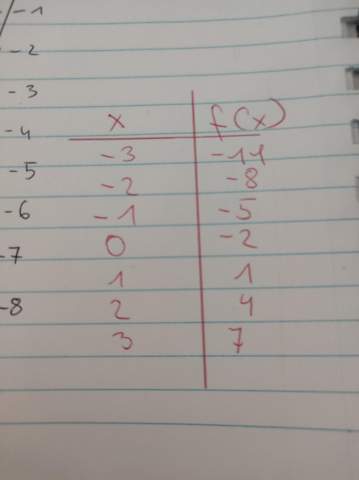 -1
-2
-3
-4
-5
-6
-7
-8
x f(x)
-3 -11
-2 -8
-1 -5
0 -2
1 1
2 4
3 7